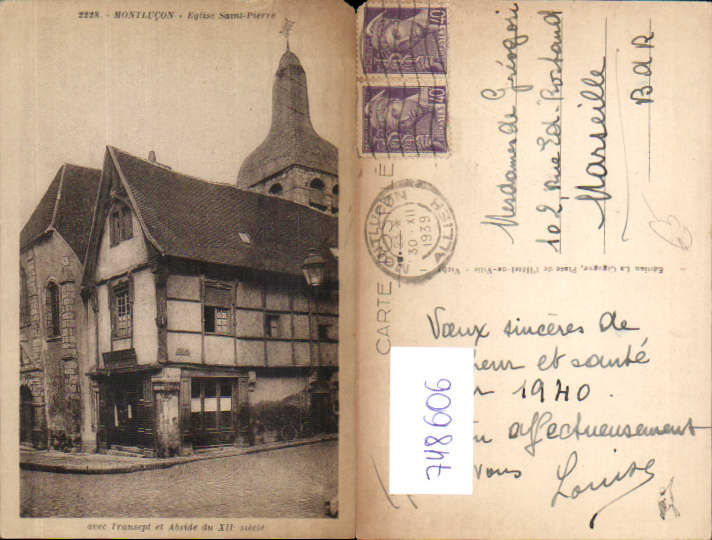 2228. - MONTLUÇON - Eglise Saint-Pierre
avec Transept et Abside du XIIe siècle
Mesdames de
102, rue Ed. Rostand
Marseille
B d R
40
40
MONTLUÇON
30 - XII
1939
ALLIER
CARTE
Edition La Cigogne, Place de l'Hôtel-de-Ville - Vichy
Vœux sincères de
et santé
1940.
affectueusement
vous
Louise
748606